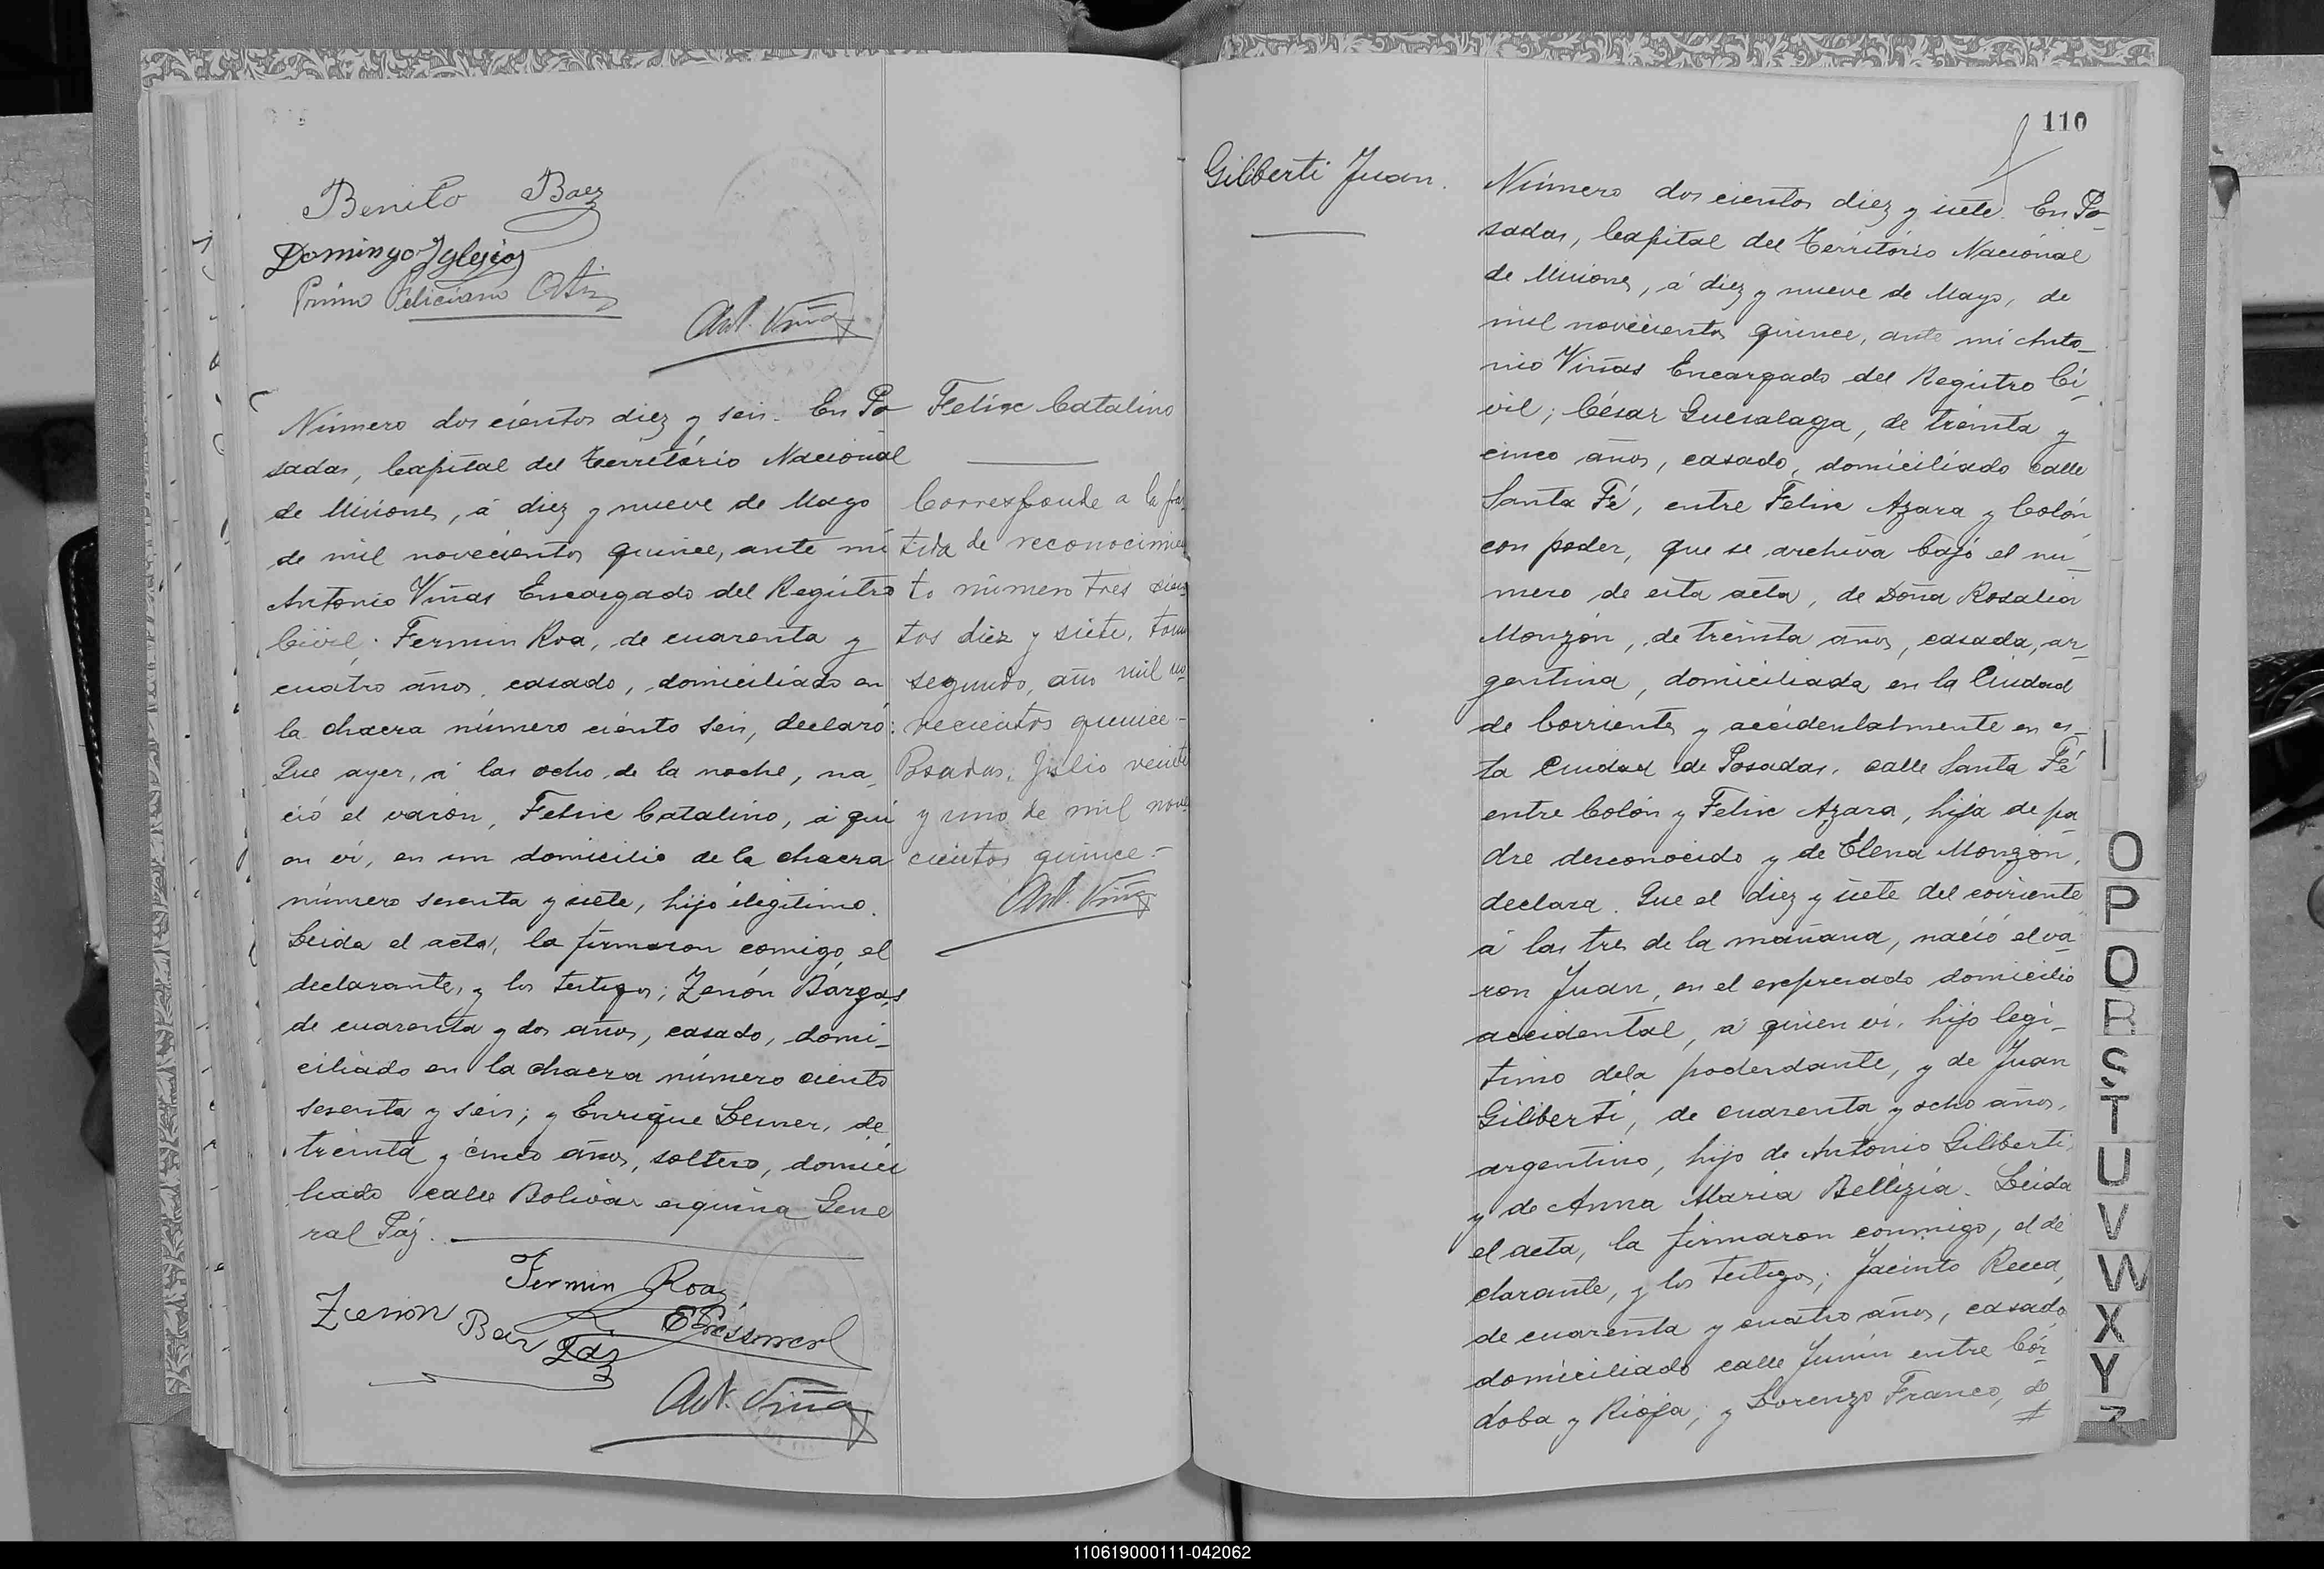 Benito Baez
Domingo Yglesias
Primo Feliciano
Ant. Viñas
Número dos cientos diez y seis. En Po-
sadas, Capital del Território Nacional
de Misiones, á diez y nueve de Mayo
de mil novecientos quince, ante mí
Antonio Viñas Encargado del Registro
Civil. Fermin Roa, de cuarenta y
cuatro años, casado, domiciliado en
la chacra número ciento seis, declaró:
Que ayer, á las ocho de la noche, na-
ció el varón, Felix Catalino, á qui
en ví, en un domicilio de la chacra
número sesenta y siete, hijo ilegítimo.
Leida el acta, la firmaron comigo, el
declarante, y los testigos; Zenón Bárgas
de cuarenta y dos años, casado, domi-
ciliado en la chacra número ciento
sesenta y seis; y Enrique Lesner, de
treinta y cinco años, soltero, domici
liado calle Bolívar esquina Gene
ral Paz.
Fermin Roa
Zenon Bargas
Ant. Viñas
Felix Catalino
Corresponde a la par
tida de reconocimien
to número tres cien
tos diez y siete, tomo
segundo, año mil no
vecientos quince.-
Posadas, Julio veinte
y uno de mil nove
cientos quince.-
Ant. Viñas
110
Giliberti Juan.
Número dos cientos diez y siete. En Po-
sadas, Capital del Territorio Nacional
de Misiones, á diez y nueve de Mayo, de
mil novecientos quince, ante mí Anto-
nio Viñas Encargado del Registro Ci-
vil; César Guesalaga, de treinta y
cinco años, casado, domiciliado calle
Santa Fé, entre Felix Azara y Colón,
con poder, que se archiva bajo el nú-
mero de esta acta, de Doña Rosalia
Monzón, de treinta años, casada, ar-
gentina, domiciliada en la Ciudad
de Corrientes y accidentalmente en es-
ta Ciudad de Posadas, calle Santa Fé
entre Colón y Felix Azara, hija de pa-
dre desconocido y de Elena Monzon,
declara. Que el diez y siete del corriente
á las tres de la mañana, nació el va-
ron Juan, en el expresado domicilio
accidental, á quien ví, hijo legí-
timo dela poderdante, y de Juan
Giliberti, de cuarenta y ocho años,
argentino, hijo de Antonio Giliberti
y de Anna Maria Bellizia. Leida
el acta, la firmaron conmigo, el de
clarante, y los testigos; Jacinto Recca,
de cuarenta y cuatro años, casado
domiciliado calle Junín entre Cór-
doba y Rioja; y Lorenzo Franco, de
O
P
Q
R
S
T
U
V
W
X
Y
Z
110619000111-042062